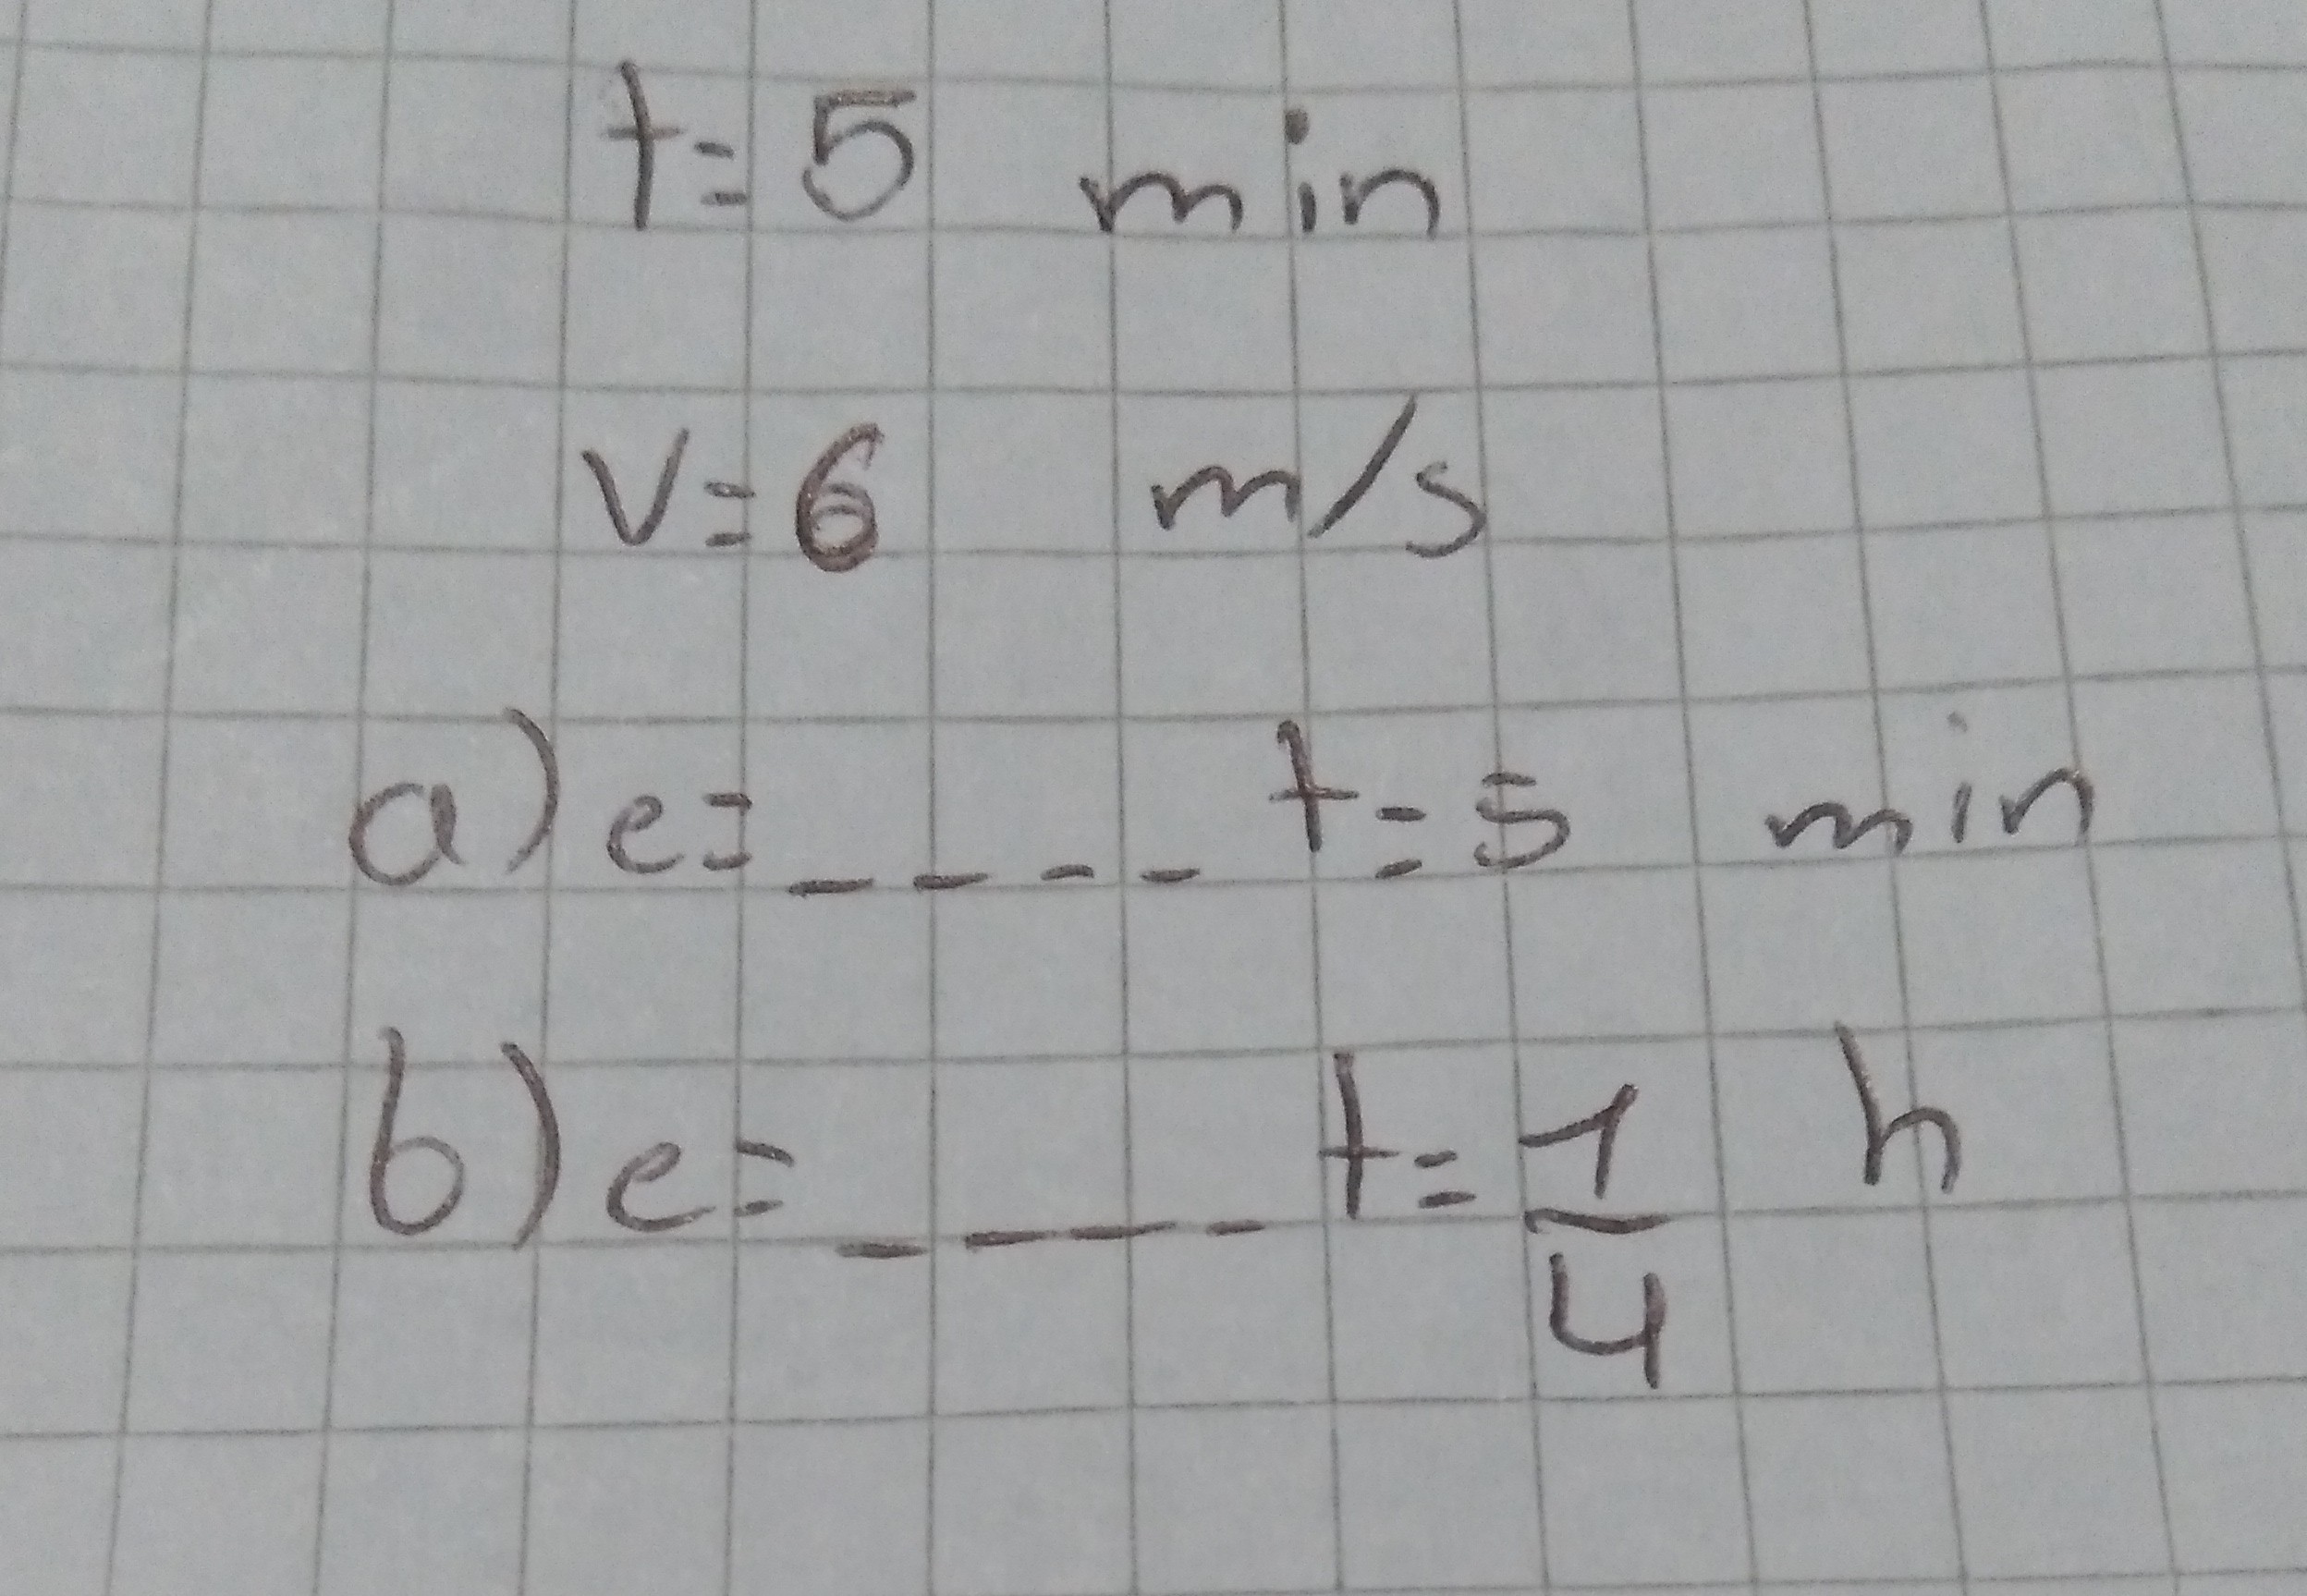 t=5 min
v=6 m/s
a) e=____ t=5 min
b) e=____ t=1/4 h